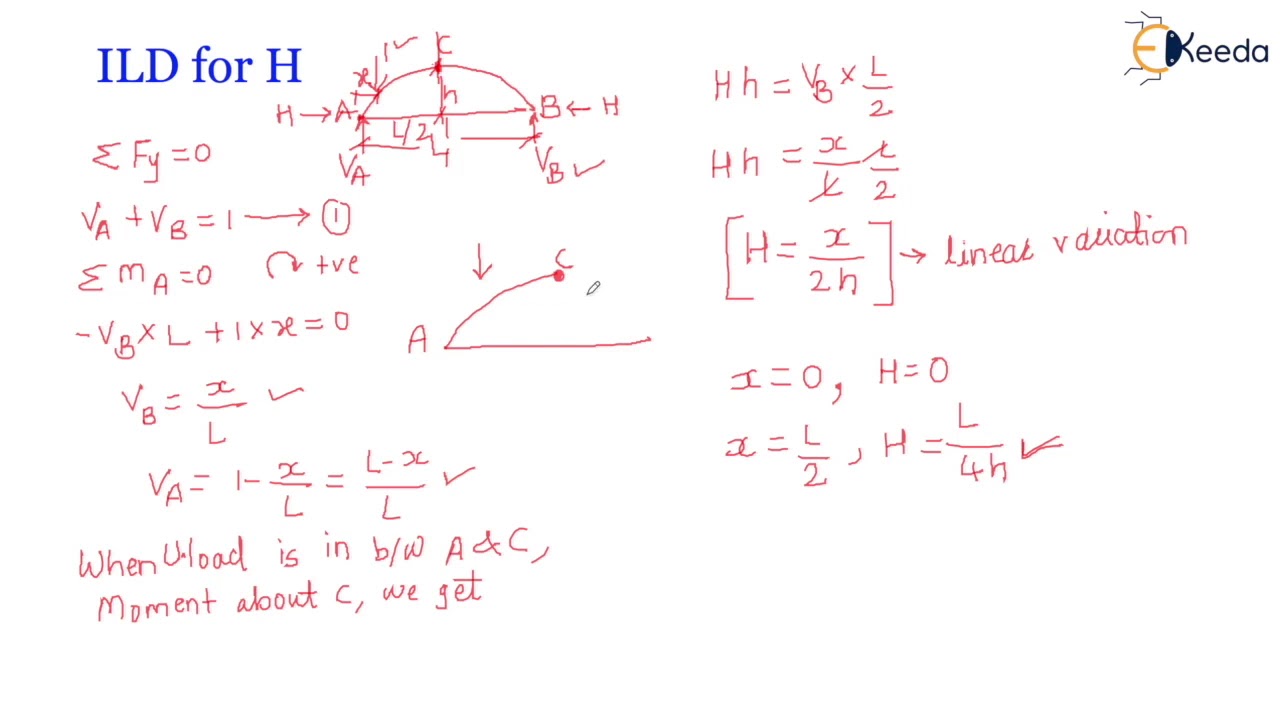 ILD for H
EKeeda
1 ✓
C
x
h
H → A
B ← H
L/2
L
V_A
V_B ✓
ΣFy = 0
V_A + V_B = 1 → ①
Σm_A = 0 +ve
-V_B × L + 1 × x = 0
V_B = x/L ✓
V_A = 1 - x/L = L-x/L ✓
When U.load is in b/w A & C,
Moment about C, we get
C
A
Hh = V_B × L/2
Hh = x/L L/2
[H = x/2h] → linear variation
x = 0, H = 0
x = L/2, H = L/4h ✓